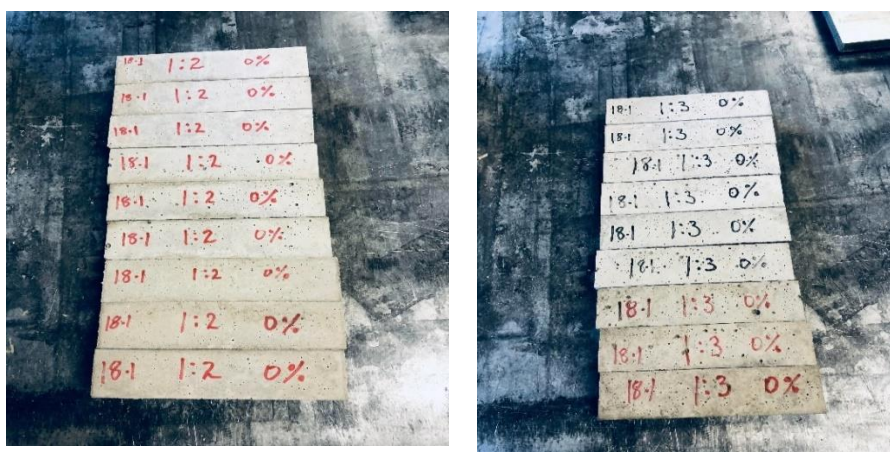 18.1 1:2 0%
18.1 1:2 0%
18.1 1:2 0%
18.1 1:2 0%
18.1 1:2 0%
18.1 1:2 0%
18.1 1:2 0%
18.1 1:2 0%
18.1 1:2 0%
18.1 1:3 0%
18.1 1:3 0%
18.1 1:3 0%
18.1 1:3 0%
18.1 1:3 0%
18.1 1:3 0%
18.1 1:3 0%
18.1 1:3 0%
18.1 1:3 0%